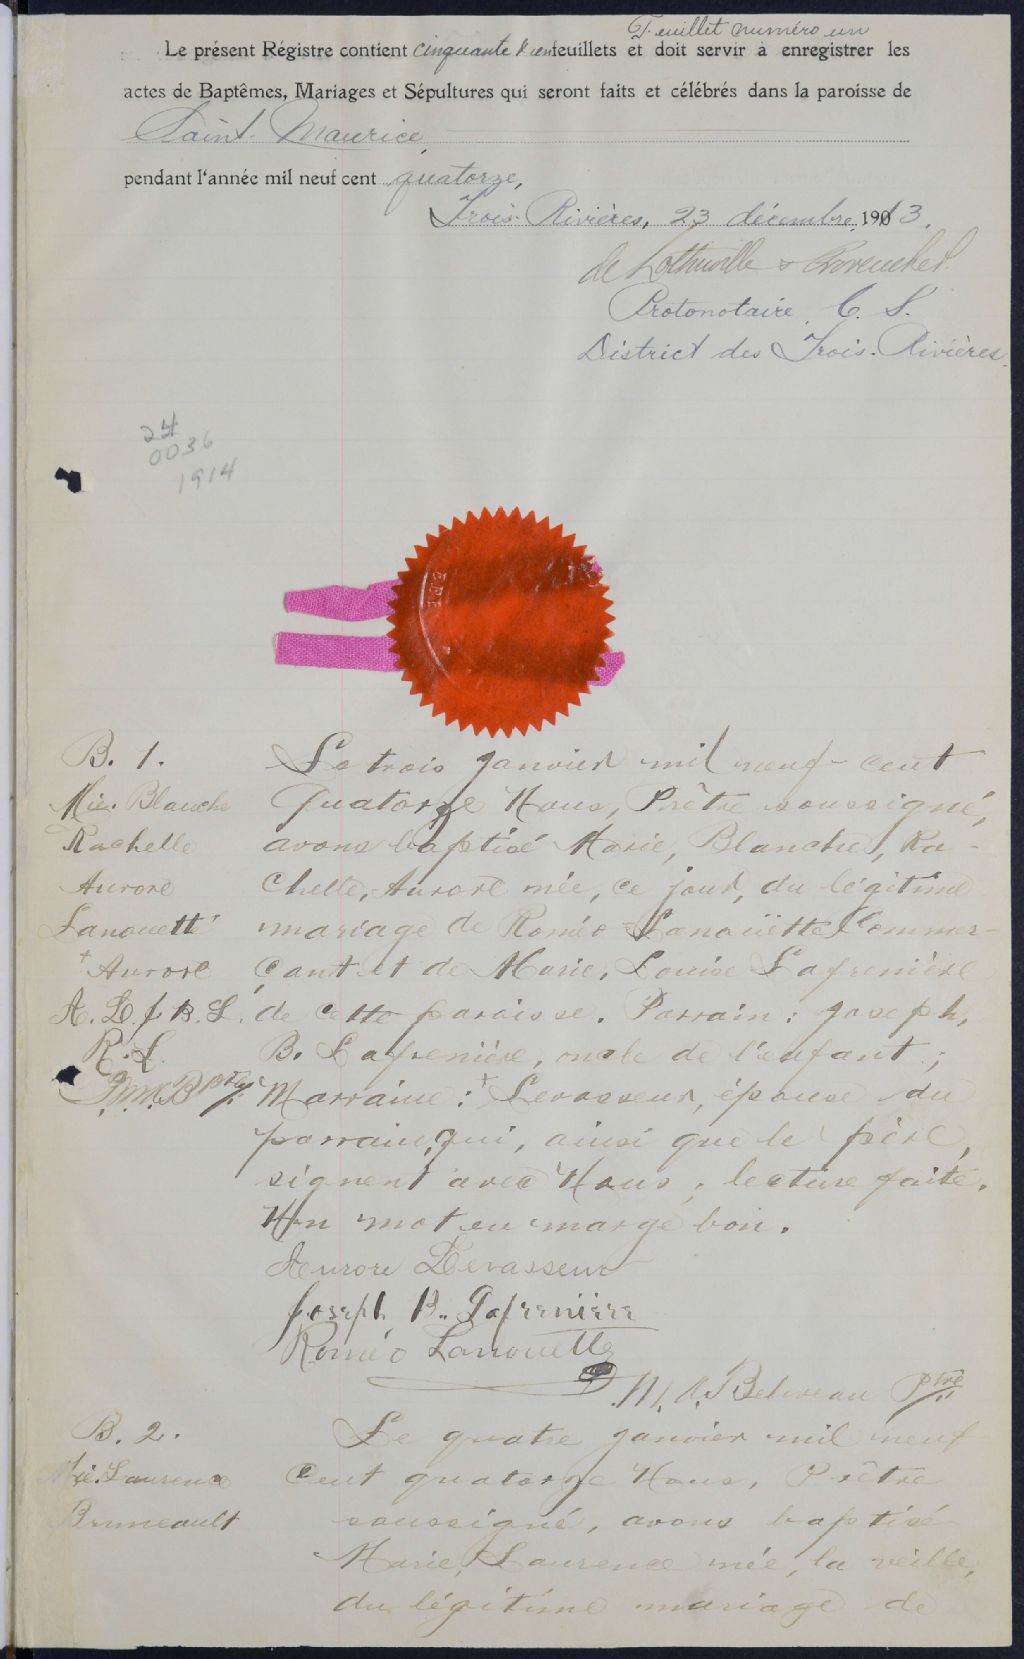 Feuillet numéro un
Le présent Régistre contient cinquante & un feuillets et doit servir à enregistrer les
actes de Baptêmes, Mariages et Sépultures qui seront faits et célébrés dans la paroisse de
Saint-Maurice,
pendant l'année mil neuf cent quatorze,
Trois-Rivières, 23 décembre 1913.
de Lottinville & Provencher
Protonotaire C. S.
District des Trois-Rivières
24
0036
1914
B. 1.
Mie. Blanche
Rachelle
Aurore
Lanouette
+ Aurore
A. L. J. B. L.
R. L.
Le trois janvier mil neuf-cent
quatorze Nous, Prêtre soussigné,
avons baptisé Marie, Blanche, Ra-
chelle, Aurore née, ce jour, du légitime
mariage de Roméo Lanouëtte Commer-
çant et de Marie, Louise Lafrenière
de cette paroisse. Parrain: Joseph,
B. Lafrenière, oncle de l'enfant;
Marraine: + Levasseur, épouse du
parrain, qui, ainsi que le père,
signent avec Nous, lecture faite.
Un mot en marge bon.
Aurore Levasseur
Joseph B. Lafreniere
Roméo Lanouette
Beliveau Ptre
B. 2.
Mie. Laurence
Bruneault
Le quatre janvier mil neuf
cent quatorze Nous, Prêtre
soussigné, avons baptisé
Marie, Laurence née, la veille,
du légitime mariage de